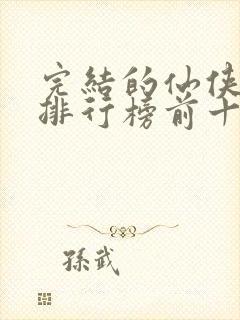 完結的仙俠
排行榜前十
孫武